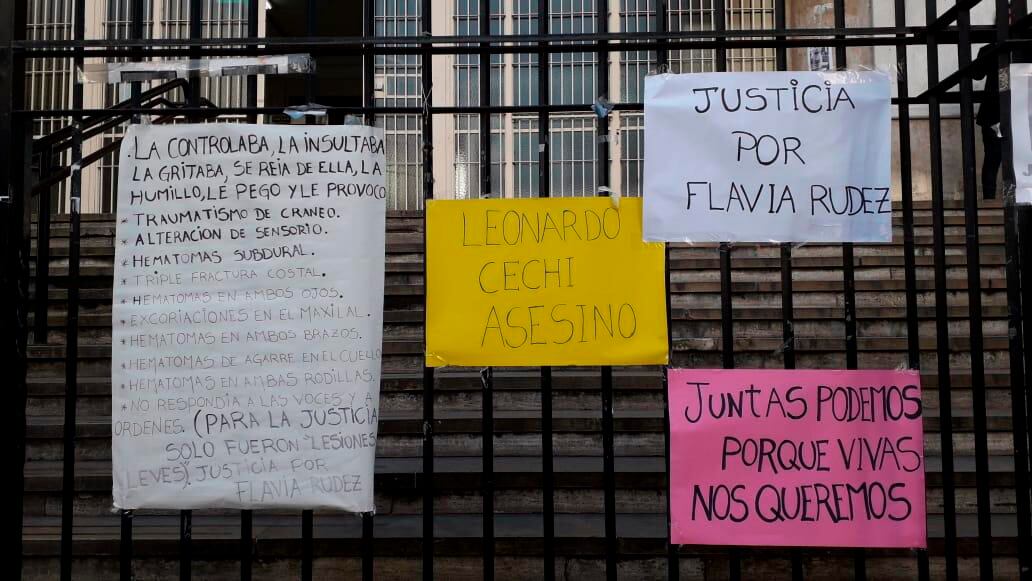 .LA CONTROLABA, LA INSULTABA
LA GRITABA, SE REIA DE ELLA, LA
HUMILLO, LE PEGO Y LE PROVOCO
* TRAUMATISMO DE CRANEO.
* ALTERACION DE SENSORIO.
* HEMATOMAS SUBDURAL.
* TRIPLE FRACTURA COSTAL.
* HEMATOMAS EN AMBOS OJOS.
* EXCORIACIONES EN EL MAXILAL.
* HEMATOMAS EN AMBOS BRAZOS.
* HEMATOMAS DE AGARRE EN EL CUELLO
* HEMATOMAS EN AMBAS RODILLAS.
* NO RESPONDIA A LAS VOCES Y A
ORDENES. (PARA LA JUSTICIA
SOLO FUERON "LESIONES
LEVES"). JUSTICIA POR
FLAVIA RUDEZ
LEONARDO
CECHI
ASESINO
JUSTICIA
POR
FLAVIA RUDEZ
JUNTAS PODEMOS
PORQUE VIVAS
NOS QUEREMOS